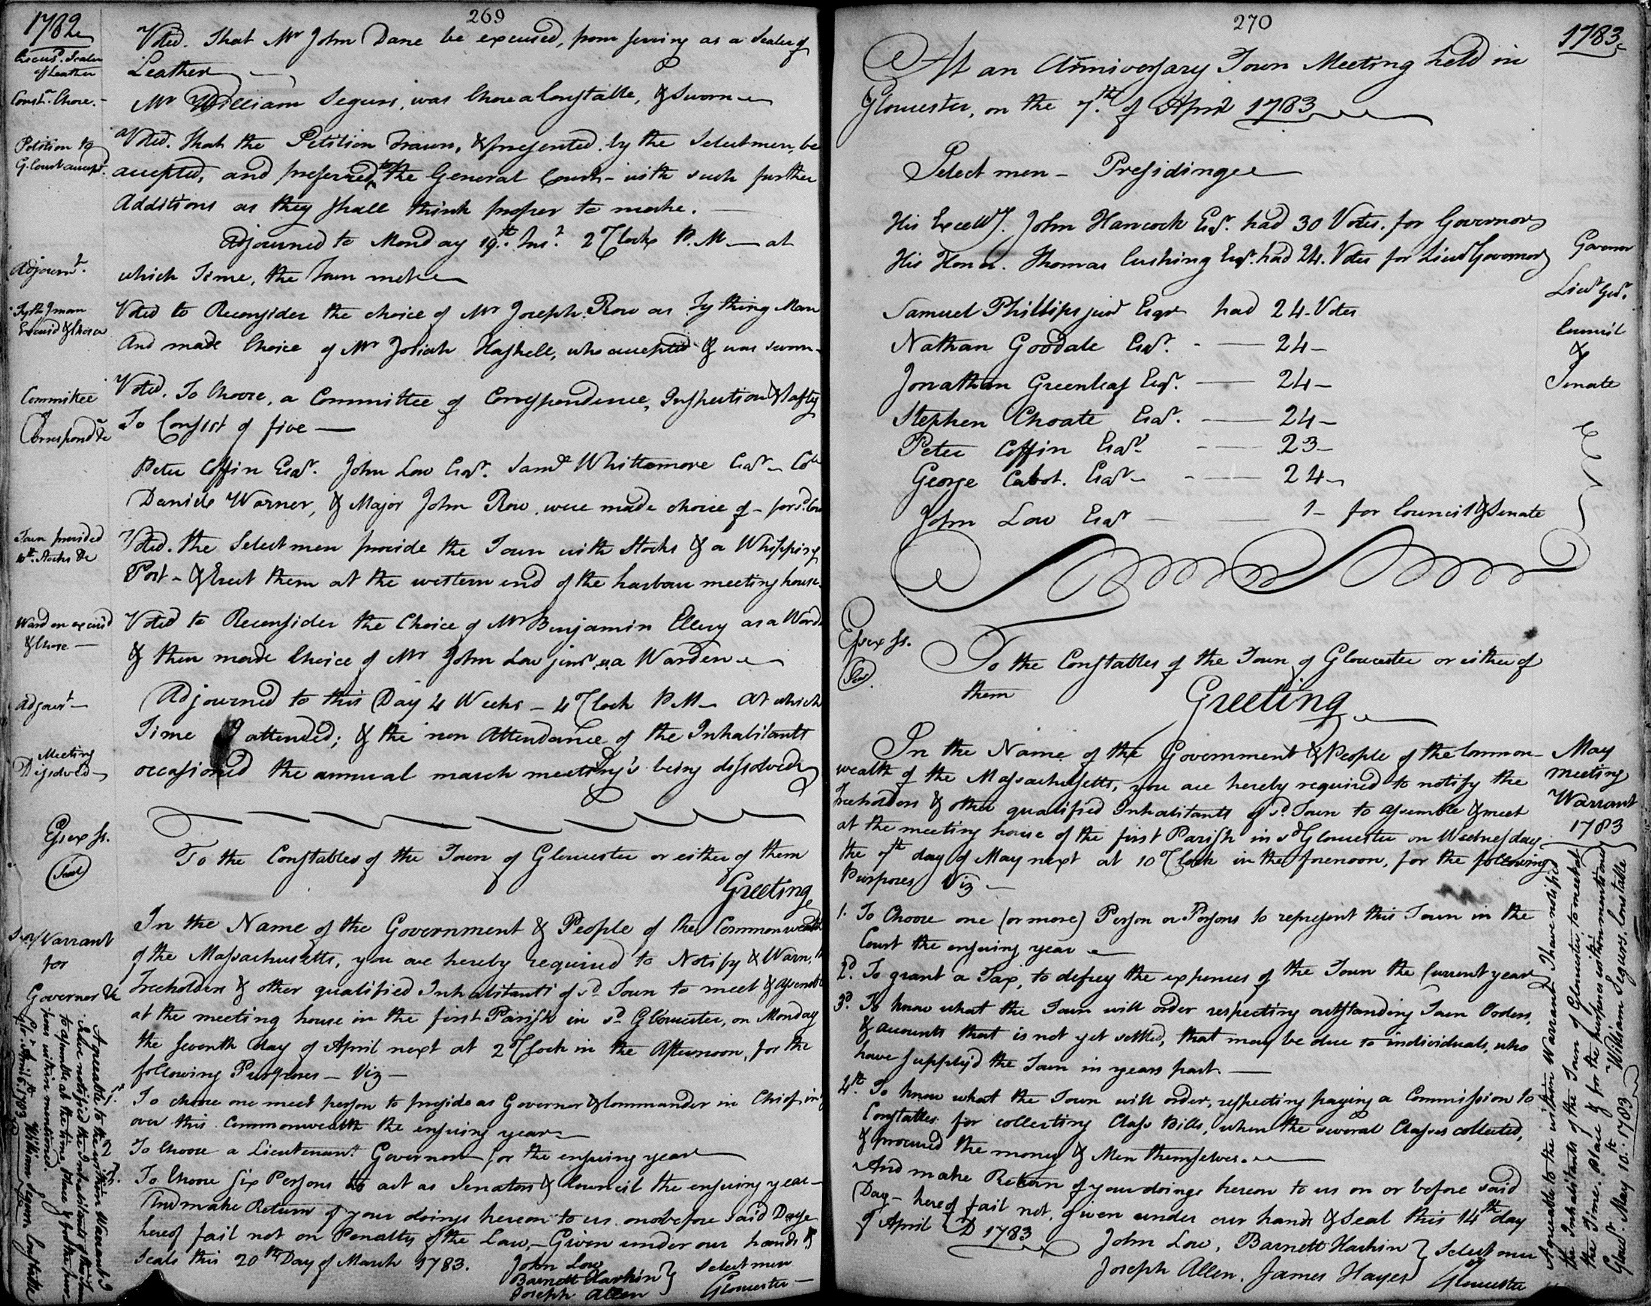 269
1782
Voted. That Mr John Dane be excused, from serving as a Sealer of
Leather
Excusd. Sealer
of Leather
Mr William Segurs, was Chose a Constable, & Sworn
Constl. Chose.
Voted. That the Petition drawn, & presented by the Selectmen, be
accepted, and preferred to the General Court - with such further
Additions as they shall think proper to make.
Petition to
G. Court accept.
Adjourned to Monday 19th. Inst. 2 OClock P.M. - at
which Time, the Town met
Adjournt.
Voted to Reconsider the choice of Mr Joseph Row as Tything Man
And made Choice of Mr Josiah Haskell, who accepted & was sworn
Tythingman
Excusd & Chosen
Voted. To Choose, a Committee of Correspondence, Inspection & safty
To Consist of five
Committee
of
Correspondce
Peter Coffin Esqr. John Low Esqr. Saml Whittemore Esqr - Coln
Daniel Warner, & Major John Row, were made choice of - for sd. Com
Voted. the Selectmen provide the Town with Stocks & a Whipping
Post - & Erect them at the western end of the harbour meeting house
Town provided
wth. Stocks &c
Voted to Reconsider the Choice of Mr Benjamin Ellery as a Ward
& then made Choice of Mr John Low junr as a Warden
Warden excusd
& Chose
Adjourned to this Day 4 Weeks - 4 OClock P.M - At which
Time I attended; & the non Attendance of the Inhabitants
occasioned the annual march meeting's being dissolved
Adjournt
Meeting
Dissolved
Essex ss.
Seal
To the Constables of the Town of Gloucester or either of them
Greeting
In the Name of the Government & People of the Commonwealth
of the Massachusetts, you are hereby required to Notify & Warn, the
Freeholders & other qualified Inhabitants of sd. Town to meet & assemble
at the meeting house in the first Parish in sd. Gloucester, on Monday
the seventh day of April next at 2 OClock in the Afternoon, for the
following Purposes - Viz
Warrant
for
Governor &c
1st. To choose one meet person to preside as Governor & Commander in Chief, in &
over this Commonwealth the ensuing year
2 To Choose a Lieutenant Governor for the ensuing year
3. To Choose Six Persons to act as Senators & Council the ensuing year
And make Return of your doings hereon to us on or before said Day
hereof fail not on Penalty of the Law, - Given under our hands &
Seals this 20th Day of March 1783.
John Low
Barnett Harkin
Joseph Allen
Selectmen
Gloucester
Agreeable to the within Warrant
I have notified the Inhabitants of the Town
to assemble at the time, place & for the purposes
within mentioned
Glr. April 6th 1783 William Segurs Constable
270
1783
At an Anniversary Town Meeting held in
Gloucester, on the 7th. of April 1783
Select men - Presiding
His Excelly. John Hancock Esqr. had 30 Votes. for Governor
Governor
His Honr. Thomas Cushing Esqr. had 24. Votes for Lieut Governor
Lieut Govr.
Samuel Phillips junr Esqr had 24 Votes
Nathan Goodale Esqr. - 24
Jonathan Greenleaf Esqr. - 24
Stephen Choate Esqr. - 24
Peter Coffin Esqr. - 23
George Cabot. Esqr - 24
John Low Esqr - 1 - for Council & Senate
Council
&
Senate
Essex ss.
Seal
To the Constables of the Town of Gloucester or either of
them
Greeting
In the Name of the Government & People of the Common-
wealth of the Massachusetts, you are hereby required to notify the
Freeholders & other qualified Inhabitants of sd. Town to assemble & meet
at the meeting house of the first Parish in sd Gloucester on Wednesday
the 7th day of May next at 10 OClock in the forenoon, for the following
Purposes Viz
May
Meeting
Warrant
1783
1. To Choose one (or more) Person or Persons to represent this Town in the
Court the ensuing year
2d. To grant a Tax, to defrey the expences of the Town the Current year
3d. To know what the Town will order respecting outstanding Town Orders,
& accounts that is not yet settled, that may be due to individuals, who
have supply'd the Town in years past
4th. To know what the Town will order, respecting paying a Commission to
Constables for collecting Class Bills, when the several Classes collected,
& procured the money & Men themselves.
And make Return of your doings hereon to us on or before said
Day - hereof fail not given under our hands & Seal this 14th day
of April AD 1783
John Low, Barnett Harkin
Joseph Allen, James Hayes
Select men
Gloucester
Agreeable to the within Warrant I have notified
the Inhabitants of the Town of Gloucester, to meet at
the Time. Place & for the purposes within mentioned
Glour. May 10th. 1783 William Segurs, Constable